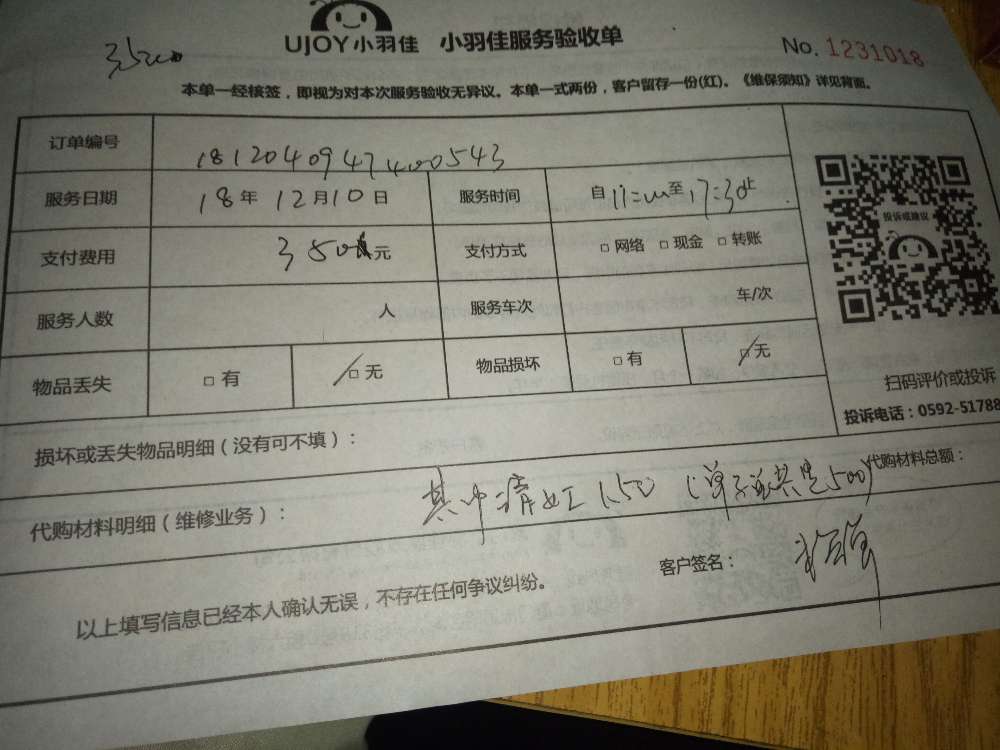 UJOY小羽佳 小羽佳服务验收单
No. 1231018
本单一经核签，即视为对本次服务验收无异议。本单一式两份，客户留存一份(红)。《维保须知》详见背面。
订单编号 1812040947400543
服务日期 18年 12月10日 服务时间 自11:00至17:30止
支付费用 350 元 支付方式 □ 网络 □ 现金 □ 转账
服务人数 人 服务车次 车/次
物品丢失 □ 有 □ 无 物品损坏 □ 有 □ 无
投诉或建议
扫码评价或投诉
投诉电话：0592-51788
损坏或丢失物品明细（没有可不填）：
代购材料明细（维修业务）： 其中清如工150 代购材料总额：
以上填写信息已经本人确认无误，不存在任何争议纠纷。 客户签名：